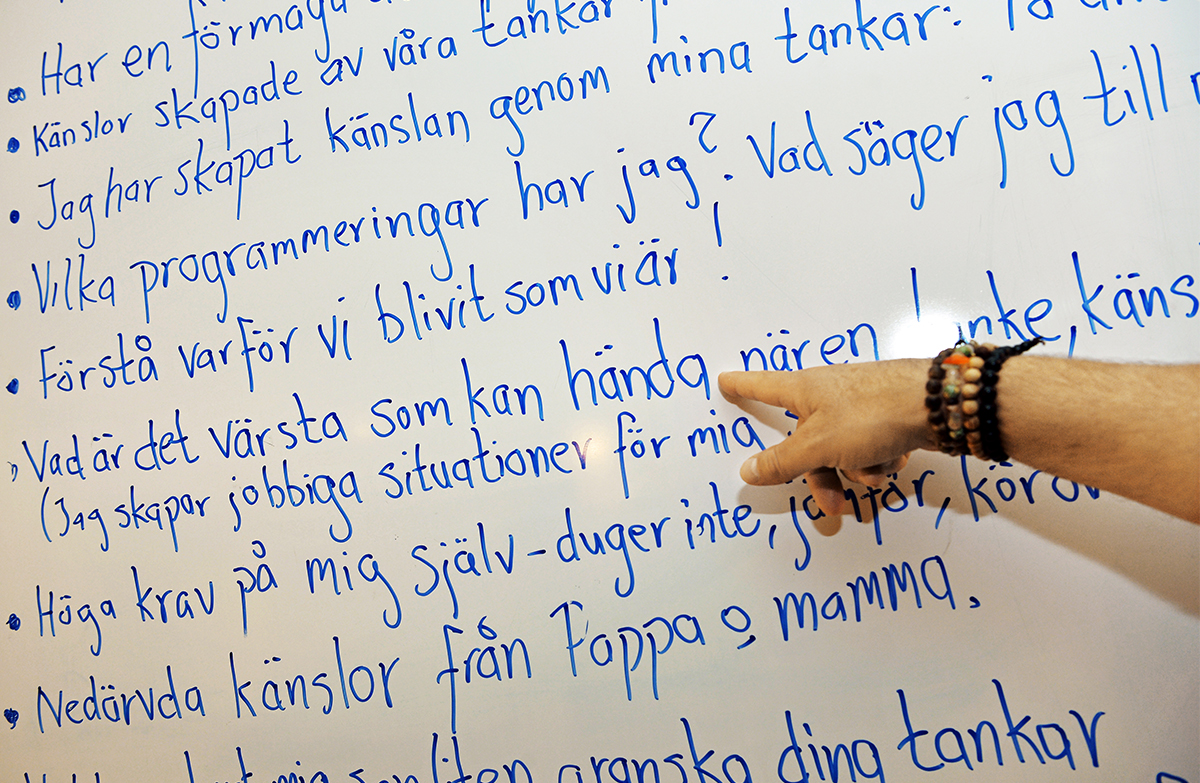 • Har en förmåga
• Känslor skapade av våra tankar
• Jag har skapat känslan genom mina tankar:
• Vilka programmeringar har jag? Vad säger jag till
• Förstå varför vi blivit som vi är!
• Vad är det värsta som kan hända när en
(Jag skapar jobbiga situationer för mig
• Höga krav på mig själv - duger inte,
• Nedärvda känslor från Pappa o mamma.
mig som liten granska dina tankar